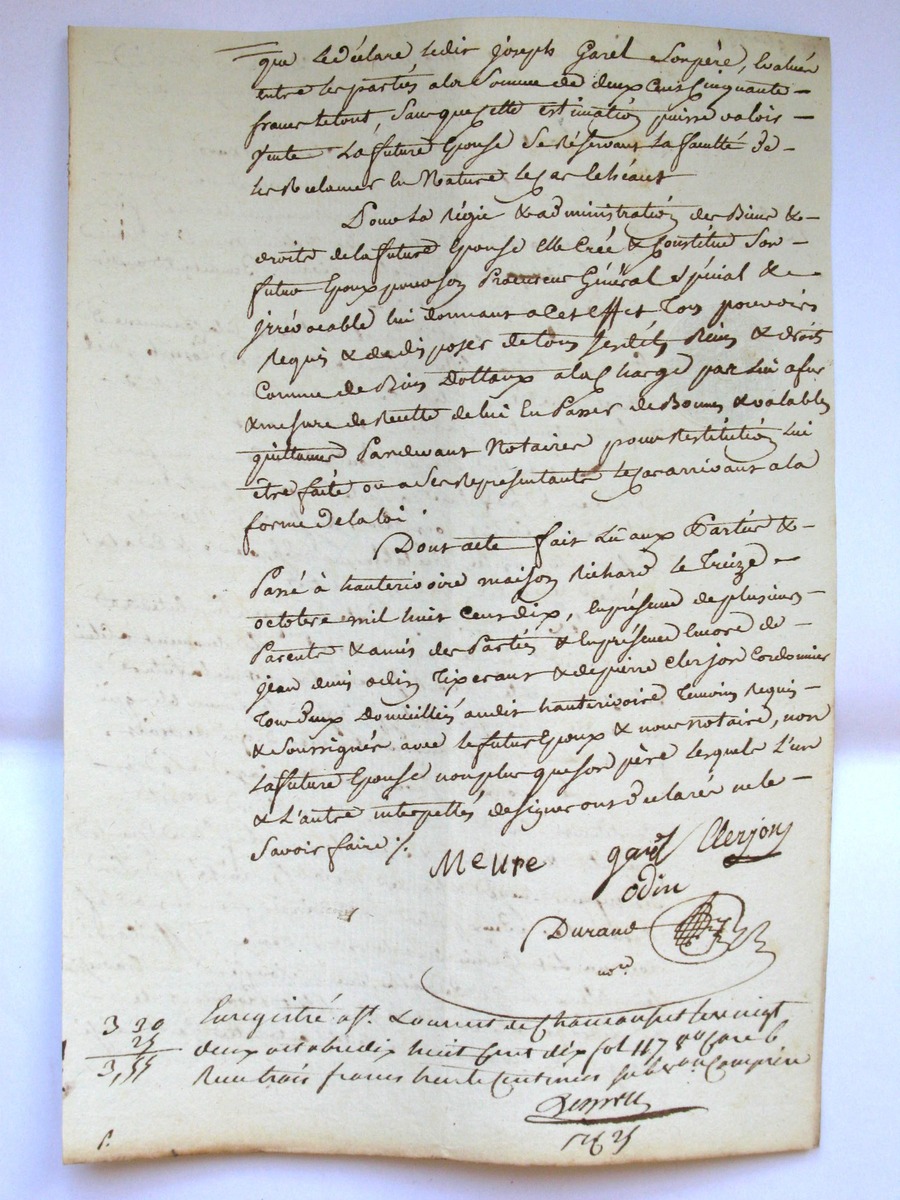 que le déclare ledit joseph Garel son père, Evalués
entre les parties a la Somme de deux Cens Cinquante
francs le tout, sans que cette estimation puisse valoir
vente La future Epouse Se Réservant La faculté de
les Reclamer En Nature le cas Echéant
Pour La Régie & administration des Biens &
droits de la future Epouse Elle Crée & Constitue Son
futur Epoux pour son Procureur Général Spécial &
jrrévocable lui donnant a Cet effet Tous pouvoirs
Requis & de disposer de tous Sesdits Biens & droits
Comme de Biens Dottaux a la Charge par Lui a fur
& mesure de Recette de lui En Passer de Bonnes & valables
quittances Pardevant Notaires pour Restitution Lui
être faite ou a Ses Représentants le cas arrivant a la
forme de la loi
Dont acte fait Lû aux Parties &
Passé à hauterivoire maison Richard le Treize
octobre mil huit Cens dix, En présence de plusieurs
Parents & amis des Parties & En présence Encore de
jean denis odin Tixerant & de pierre Clerjon Cordonnier
Tous deux Domiciliés audit hauterivoire Temoins Requis
& Soussignés avec le futur Epoux & nous Notaire, non
La future Epouse non plus que son père lesquels L'un
& L'autre interpellés de signer ont déclarés ne le
Savoir faire ./.
Meure garel Clerjon
odin
Durand
nore
3 30
33
3,55
Enregistré a St. Laurent de Chamousset le vingt
deux octobre dix huit Cent dix fol 117 Ro Case 6
Reçu trois francs trente Centimes subvon Comprise